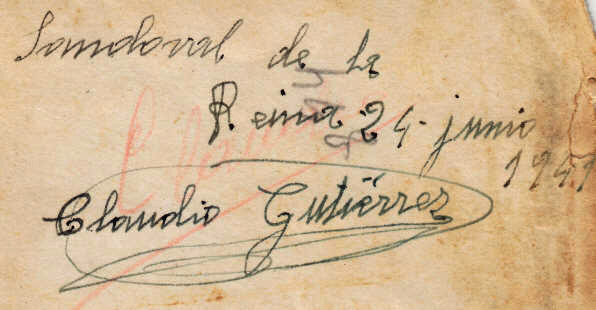 Sandoval de la
Reina 24 junio
1941
Claudio Gutiérrez